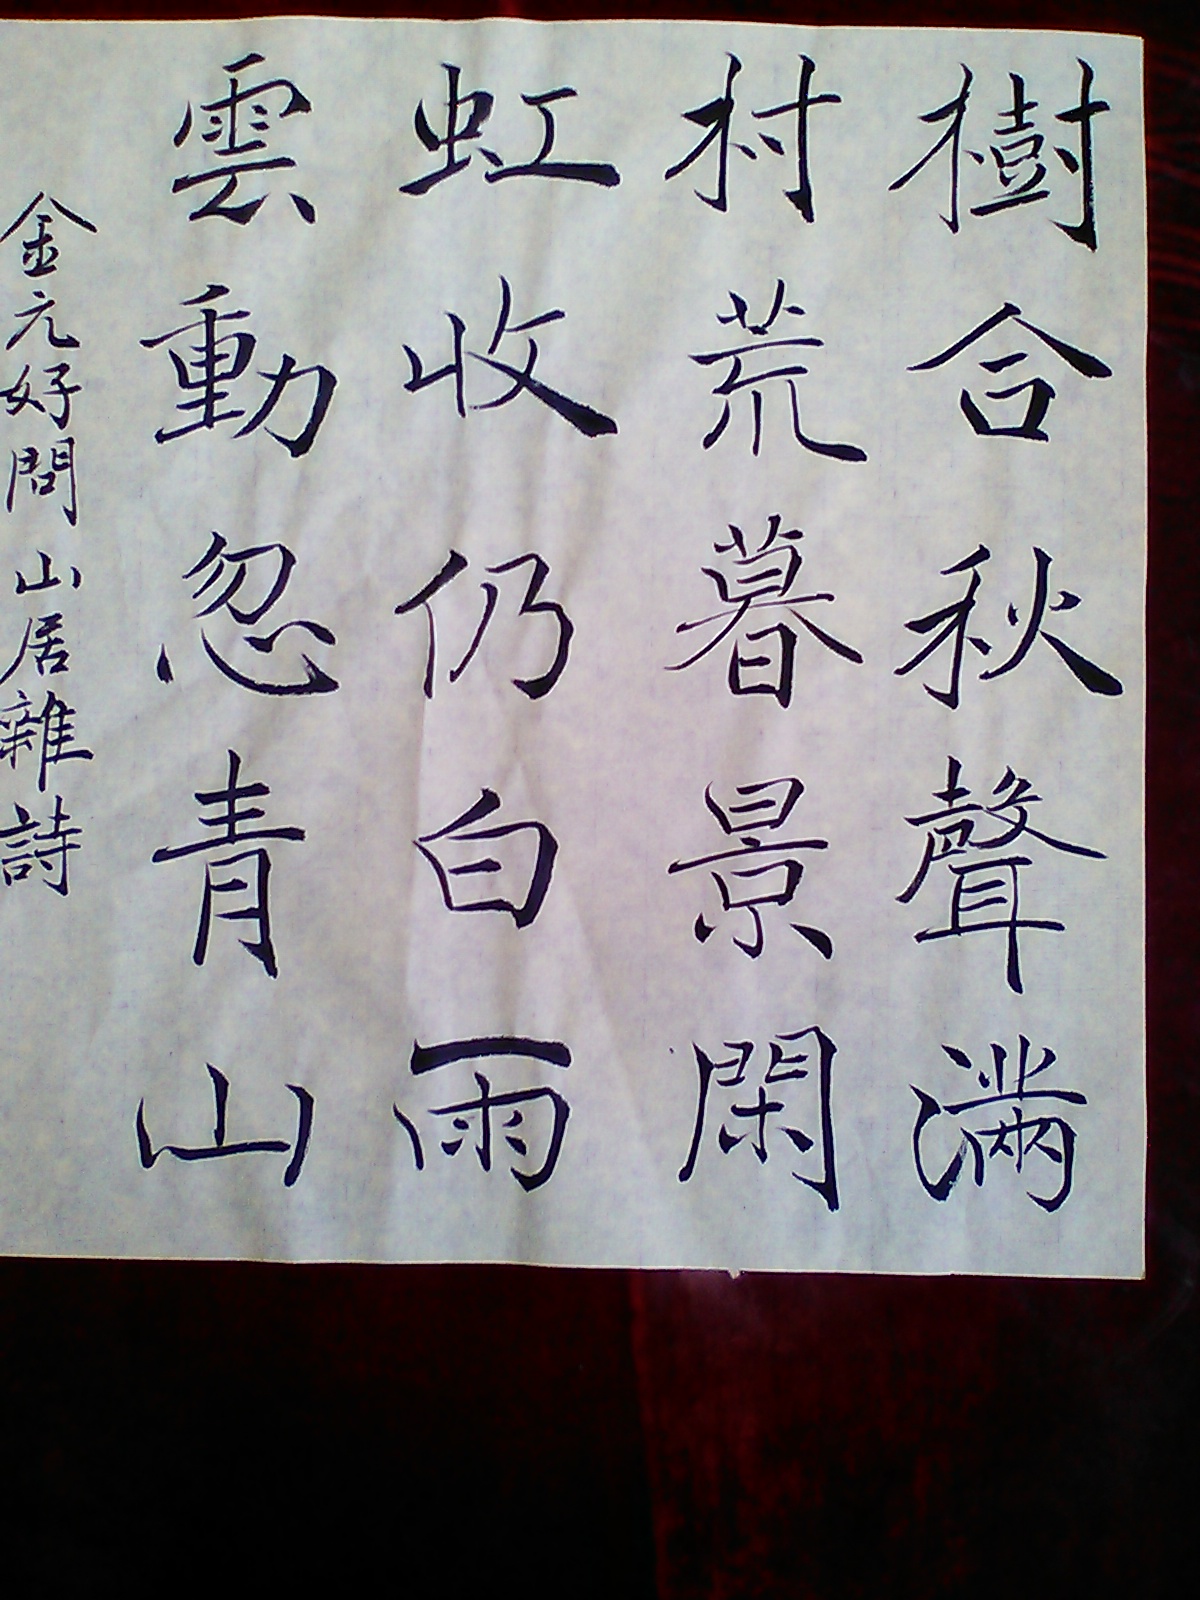 樹合秋聲滿
村荒暮景閑
虹收仍白雨
雲動忽青山
金元好問山居雜詩